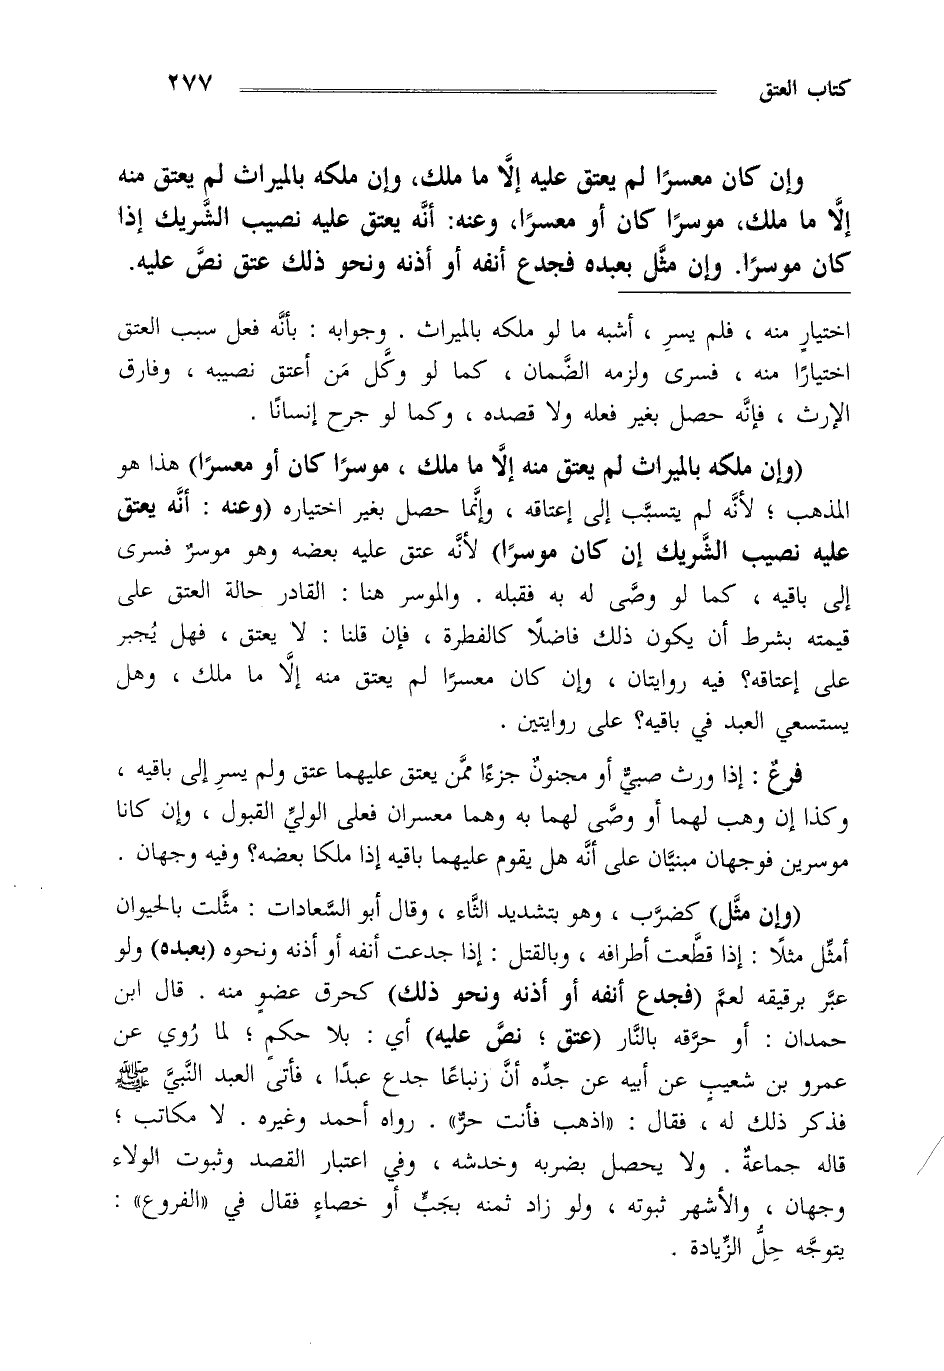 كتاب العتق ٢٧٧
وإن كان معسرًا لم يعتق عليه إلَّا ما ملك، وإن ملكه بالميراث لم يعتق منه
إلَّا ما ملك، موسرًا كان أو معسرًا، وعنه: أنَّه يعتق عليه نصيب الشَّريك إذا
كان موسرًا. وإن مثَّل بعبده فجدع أنفه أو أذنه ونحو ذلك عتق نصَّ عليه.
اختيارٍ منه ، فلم يسرِ ، أشبه ما لو ملكه بالميراث . وجوابه : بأنَّه فعل سبب العتق
اختيارًا منه ، فسرى ولزمه الضَّمان ، كما لو وكَّل مَن أعتق نصيبه ، وفارق
الإرث ، فإنَّه حصل بغير فعله ولا قصده ، وكما لو جرح إنسانًا .
(وإن ملكه بالميراث لم يعتق منه إلَّا ما ملك ، موسرًا كان أو معسرًا) هذا هو
المذهب ؛ لأنَّه لم يتسبَّب إلى إعتاقه ، وإنَّما حصل بغير اختياره (وعنه : أنَّه يعتق
عليه نصيب الشَّريك إن كان موسرًا) لأنَّه عتق عليه بعضه وهو موسرٌ فسرى
إلى باقيه ، كما لو وصَّى له به فقبله . والموسر هنا : القادر حالة العتق على
قيمته بشرط أن يكون ذلك فاضلًا كالفطرة ، فإن قلنا : لا يعتق ، فهل يُجبر
على إعتاقه؟ فيه روايتان ، وإن كان معسرًا لم يعتق منه إلَّا ما ملك ، وهل
يستسعي العبد في باقيه؟ على روايتين .
فرعٌ : إذا ورث صبيٌّ أو مجنونٌ جزءًا ممَّن يعتق عليهما عتق ولم يسرِ إلى باقيه ،
وكذا إن وهب لهما أو وصَّى لهما به وهما معسران فعلى الوليِّ القبول ، وإن كانا
موسرين فوجهان مبنيَّان على أنَّه هل يقوم عليهما باقيه إذا ملكا بعضه؟ وفيه وجهان .
(وإن مثَّل) كضرَّب ، وهو بتشديد الثَّاء ، وقال أبو السَّعادات : مثَّلت بالحيوان
أمثِّل مثلًا : إذا قطَّعت أطرافه ، وبالقتل : إذا جدعت أنفه أو أذنه ونحوه (بعبده) ولو
عبَّر برقيقه لعمَّ (فجدع أنفه أو أذنه ونحو ذلك) كحرق عضوٍ منه . قال ابن
حمدان : أو حرَّقه بالنَّار (عتق ؛ نصَّ عليه) أي : بلا حكمٍ ؛ لما رُوي عن
عمرو بن شعيبٍ عن أبيه عن جدِّه أنَّ زنباعًا جدع عبدًا ، فأتى العبد النَّبيَّ ﷺ
فذكر ذلك له ، فقال : «اذهب فأنت حرٌّ» . رواه أحمد وغيره . لا مكاتب ؛
قاله جماعةٌ . ولا يحصل بضربه وخدشه ، وفي اعتبار القصد وثبوت الولاء
وجهان ، والأشهر ثبوته ، ولو زاد ثمنه بجَبٍّ أو خصاءٍ فقال في «الفروع» :
يتوجَّه حِلُّ الزِّيادة .